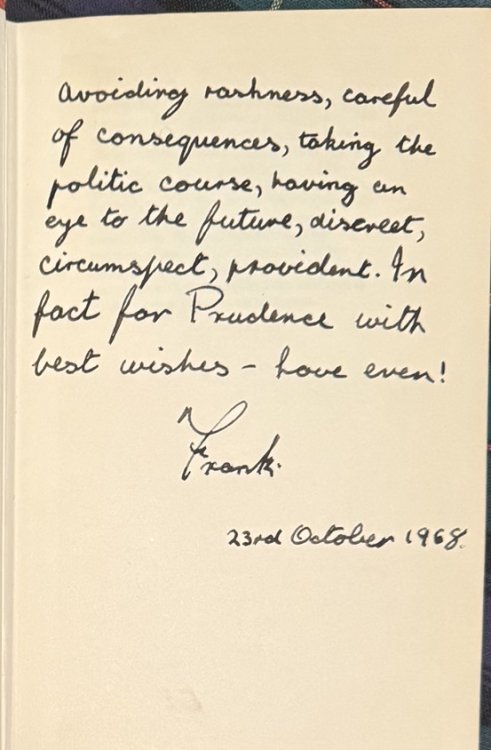 avoiding rashness, careful
of consequences, taking the
politic course, having an
eye to the future, discreet,
circumspect, provident. In
fact for Prudence with
best wishes - love even!
Frank.
23rd October 1968.